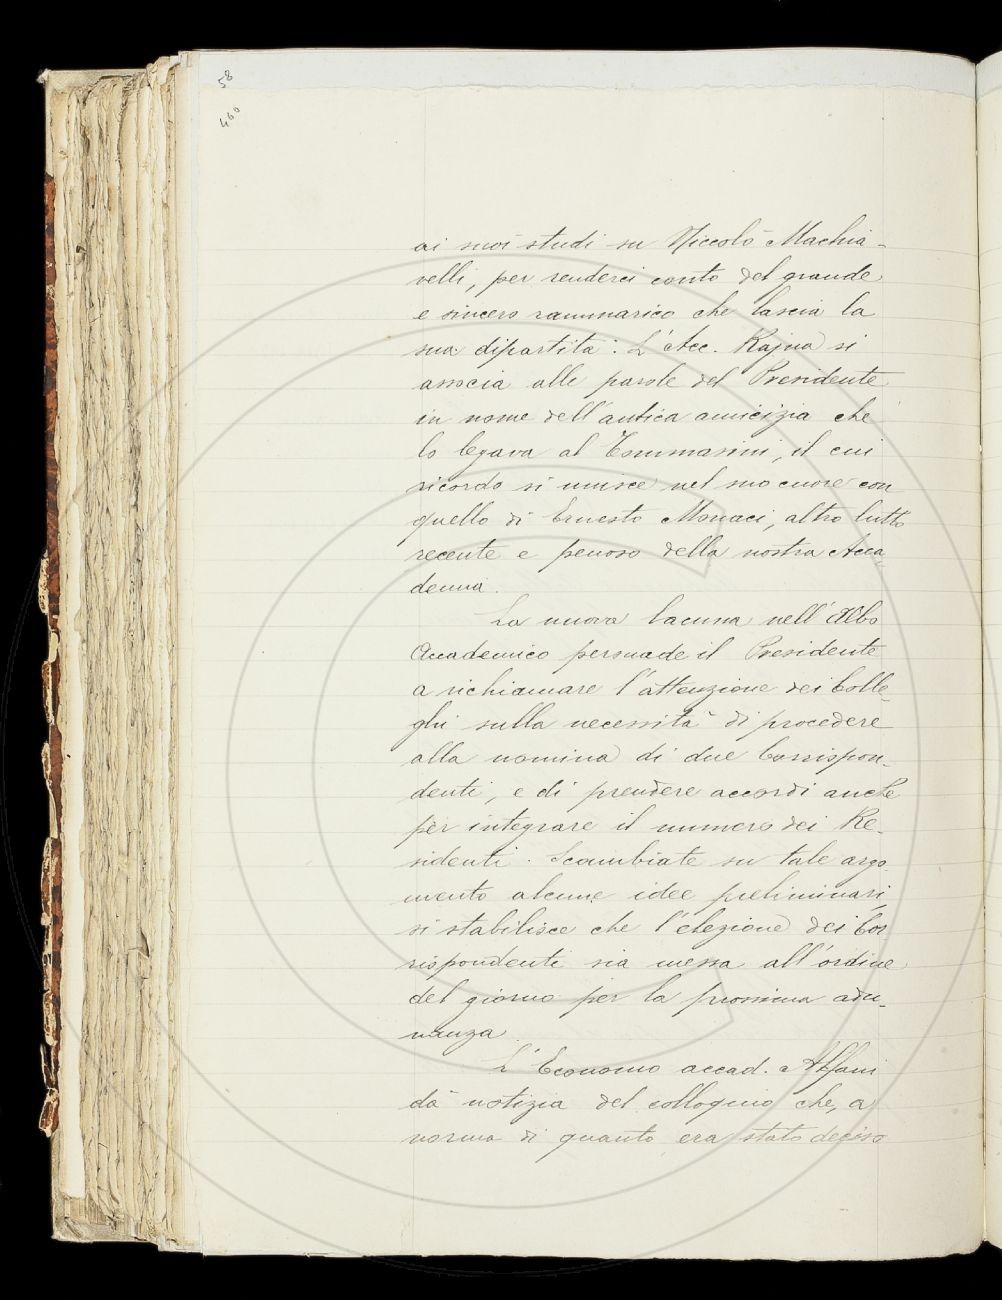 58
460
ai suoi studi su Niccolò Machia-
velli, per renderci conto del grande
e sincero rammarico che lascia la
sua dipartita. L'Acc. Rajna si
associa alle parole del Presidente
in nome dell'antica amicizia che
lo legava al Tommasini, il cui
ricordo si unisce nel suo cuore con
quello di Ernesto Monaci, altro lutto
recente e penoso della nostra Acca-
demia.
La nuova lacuna nell'Albo
Accademico persuade il Presidente
a richiamare l'attenzione dei Colle-
ghi sulla necessità di procedere
alla nomina di due Corrispon-
denti, e di prendere accordi anche
per integrare il numero dei Re-
sidenti. Scambiate su tale argo-
mento alcune idee preliminari,
si stabilisce che l'elezione dei Cor
rispondenti sia messa all'ordine
del giorno per la prossima adu-
nanza.
L'Economo accad. Alfani
dà notizia del colloquio che, a
norma di quanto era stato deciso